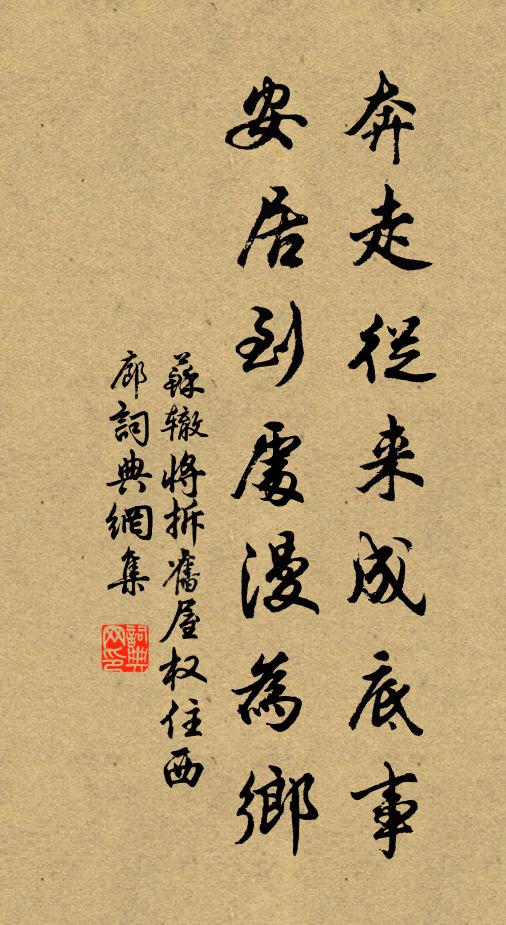 奔走從来成底事
安居到處漫為鄉
蘇辙將拆舊屋权住西
廊詞典網集
詞典网印